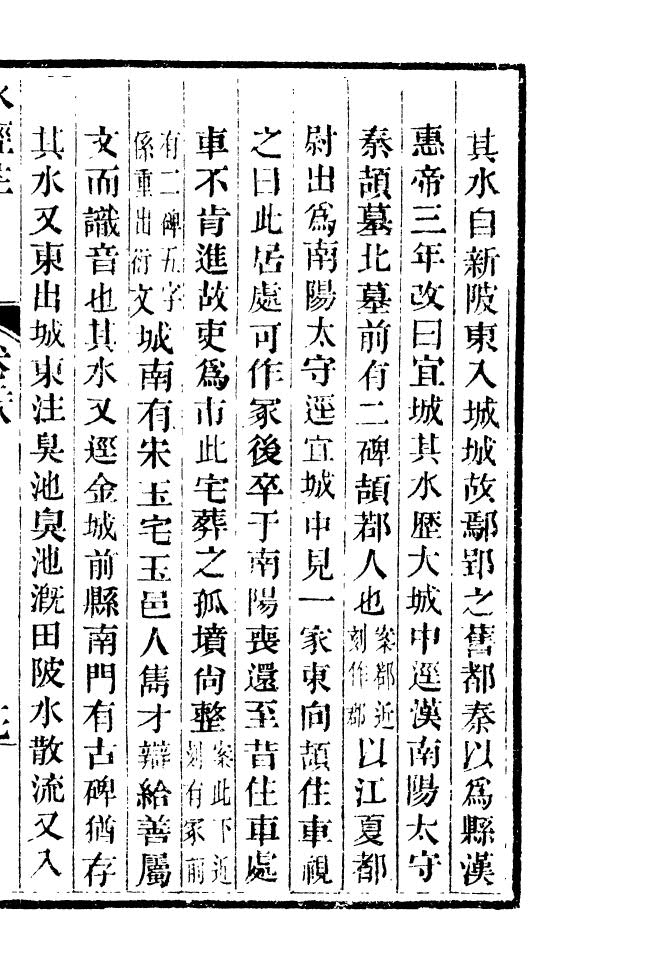 其水自新陂東入城城故鄢郢之舊都秦以爲縣漢
惠帝三年改曰宜城其水歷大城中逕漢南陽太守
秦頡墓北墓前有二碑頡鄀人也案鄀近刻作都以江夏都
尉出爲南陽太守逕宜城中見一家東向頡住車視
之曰此居處可作冢後卒于南陽喪還至昔住車處
車不肯進故吏爲市此宅葬之孤墳尙整案此下近刻有冢前
有二碑五字係重出衍文城南有宋玉宅玉邑人雋才辯給善屬
文而識音也其水又逕金城前縣南門有古碑猶存
其水又東出城東注臭池臭池漑田陂水散流又入
水經注